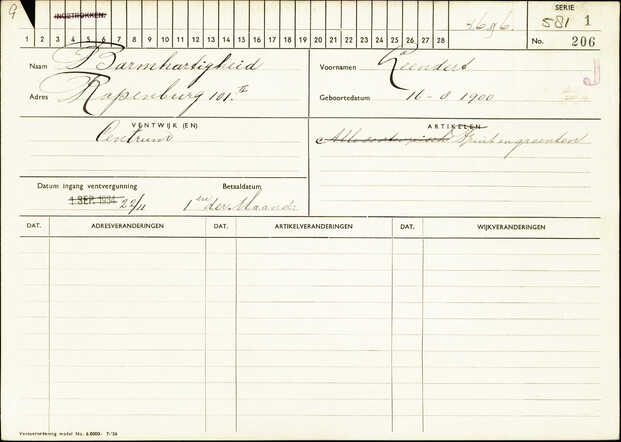 9
INGETROKKEN
4696.
SERIE
581 1
1 2 3 4 5 6 7 8 9 10 11 12 13 14 15 16 17 18 19 20 21 22 23 24 25 26 27 28
No. 206
Naam Barmhartigheid
Voornamen Leendert
J
Adres Rapenburg 101 II
Geboortedatum 16-8 1900
VENTWIJK (EN)
Centrum
ARTIKELEN
fruit en groenten
Datum ingang ventvergunning
Betaaldatum
1 SEP. 1934 22/11
1en der Maand
DAT. ADRESVERANDERINGEN DAT. ARTIKELVERANDERINGEN DAT. WIJKVERANDERINGEN
Ventverordening model No. 6.8000- 7-'36